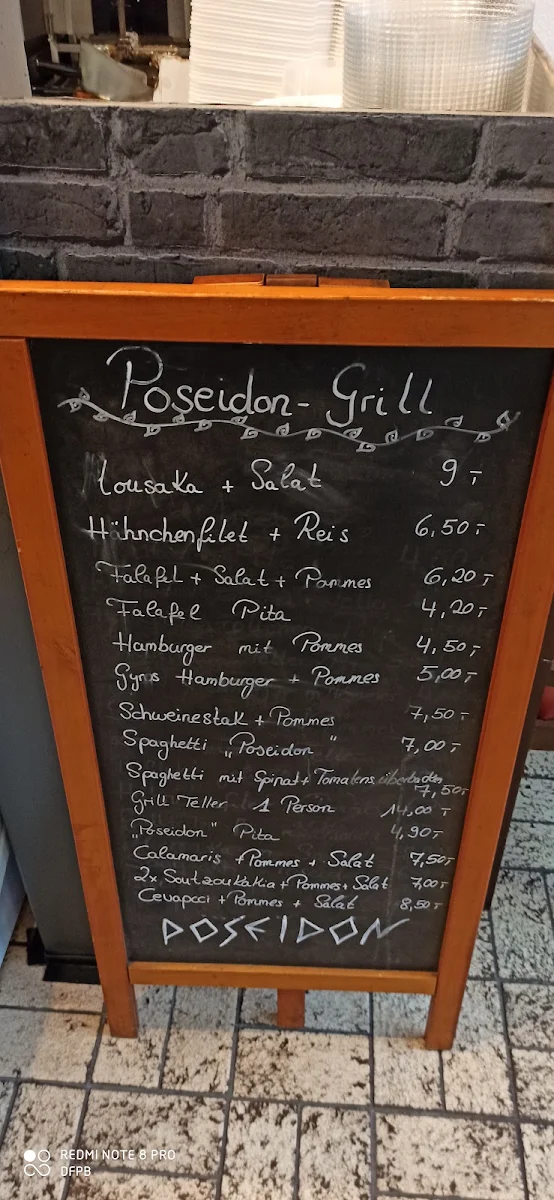 Poseidon-Grill
Mousaka + Salat 9,-
Hähnchenfilet + Reis 6,50,-
Falafel + Salat + Pommes 6,20,-
Falafel Pita 4,20,-
Hamburger mit Pommes 4,50,-
Gyros Hamburger + Pommes 5,00,-
Schweinestak + Pommes 7,50,-
Spaghetti „Poseidon" 7,00,-
Spaghetti mit Spinat + Tomatens überbaden 7,50,-
Grill Teller 1 Person 14,00,-
„Poseidon" Pita 4,90,-
Calamaris + Pommes + Salat 7,50,-
2x Soutzoukakia + Pommes + Salat 7,00,-
Cevapcci + Pommes + Salat 8,50,-
POSEIDON
REDMI NOTE 8 PRO
DFPB